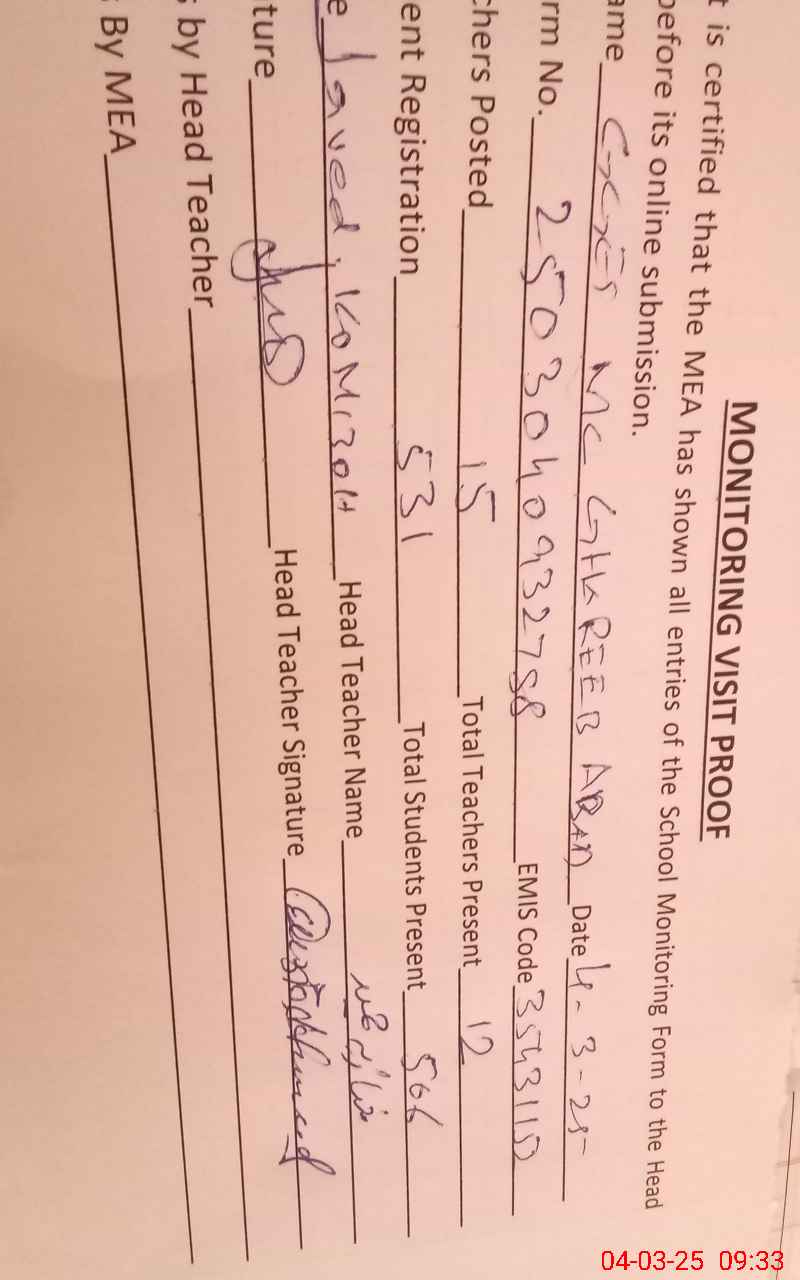 MONITORING VISIT PROOF
t is certified that the MEA has shown all entries of the School Monitoring Form to the Head
before its online submission.
ame MC GHREEB ABAD Date 4-3-25
rm No. 25030409327 EMIS Code
chers Posted 15 Total Teachers Present 12
ent Registration 531 Total Students Present 506
e Javed Head Teacher Name
ture Head Teacher Signature
s by Head Teacher
s By MEA
04-03-25 09:33